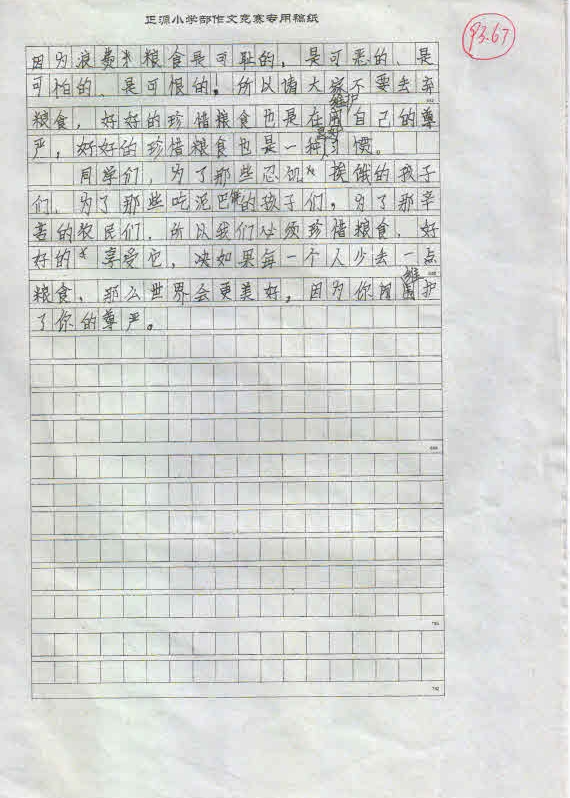 正源小学部作文竞赛专用稿纸
93.67
因为浪费粮食是可耻的，是可恶的、是
可怕的、是可恨的，所以请大家不要去弃
维护
粮食，好好的珍惜粮食也是在自己的尊
严，好好的珍惜粮食也是一种习惯。
同学们，为了那些忍饥挨饿的孩子
们，为了那些吃泥巴的孩子们，为了那辛
苦的农民们，所以我们必须珍惜粮食，好
好的享受它，决如果每一个人少去一点
维
粮食，那么世界会更美好，因为你护
了你的尊严。